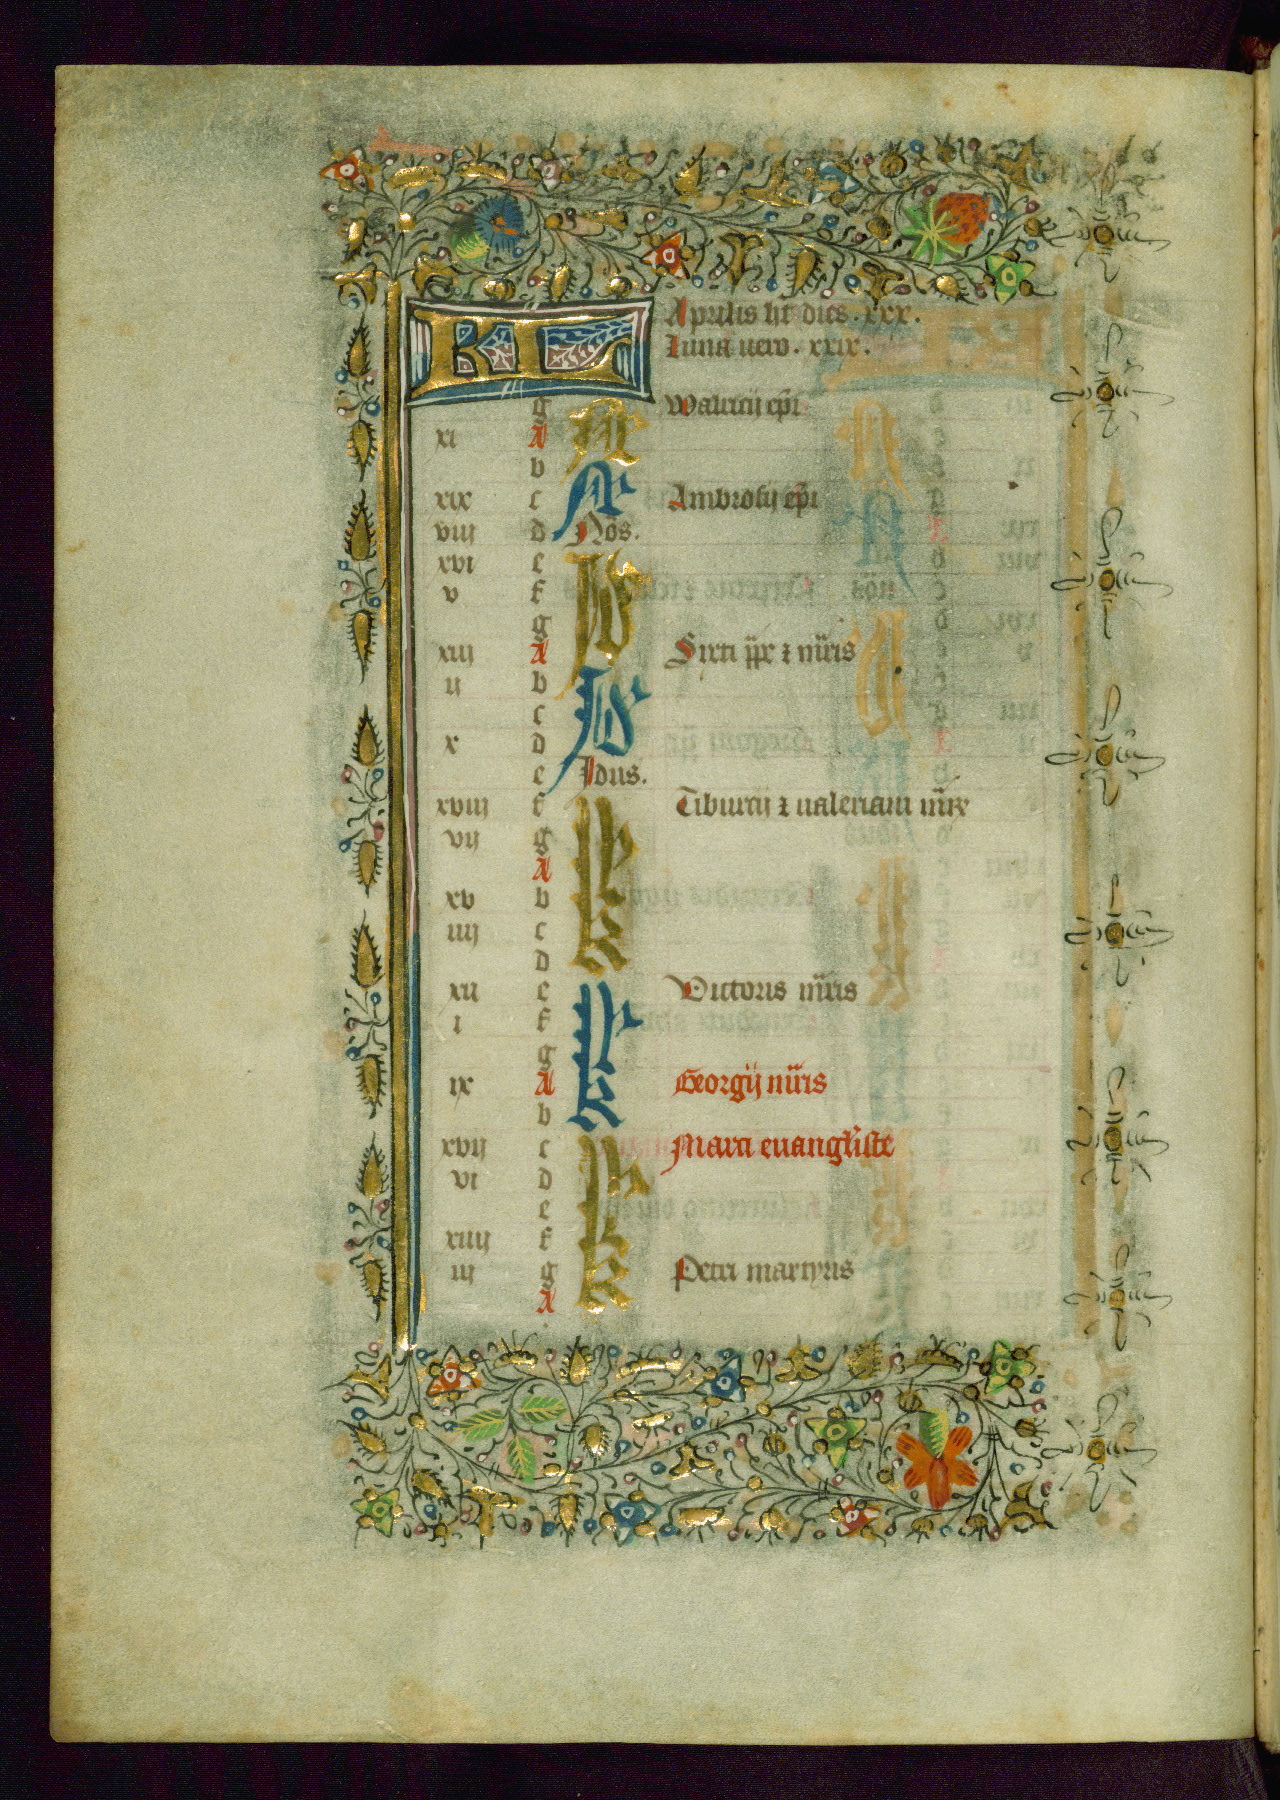 KL Aprilis ht dies . xxx .
Luna vero . xxix .
g N Walerici epi
xi A
b
xix c N Ambrosij epi
viij d Nos.
xvi e Id
v f
g
xiij A Sixti pp z mris
ij b Id
c
x d
e Idus.
xviij f k Tiburcij z ualeriani mr
vij g
A
xv b
iiij c
d
xij e k Victoris mris
i f
g
ix A Georgij mris
b
xvij c k Marci euangliste
vi d
e
xiiij f
iij g Petri martyris
A